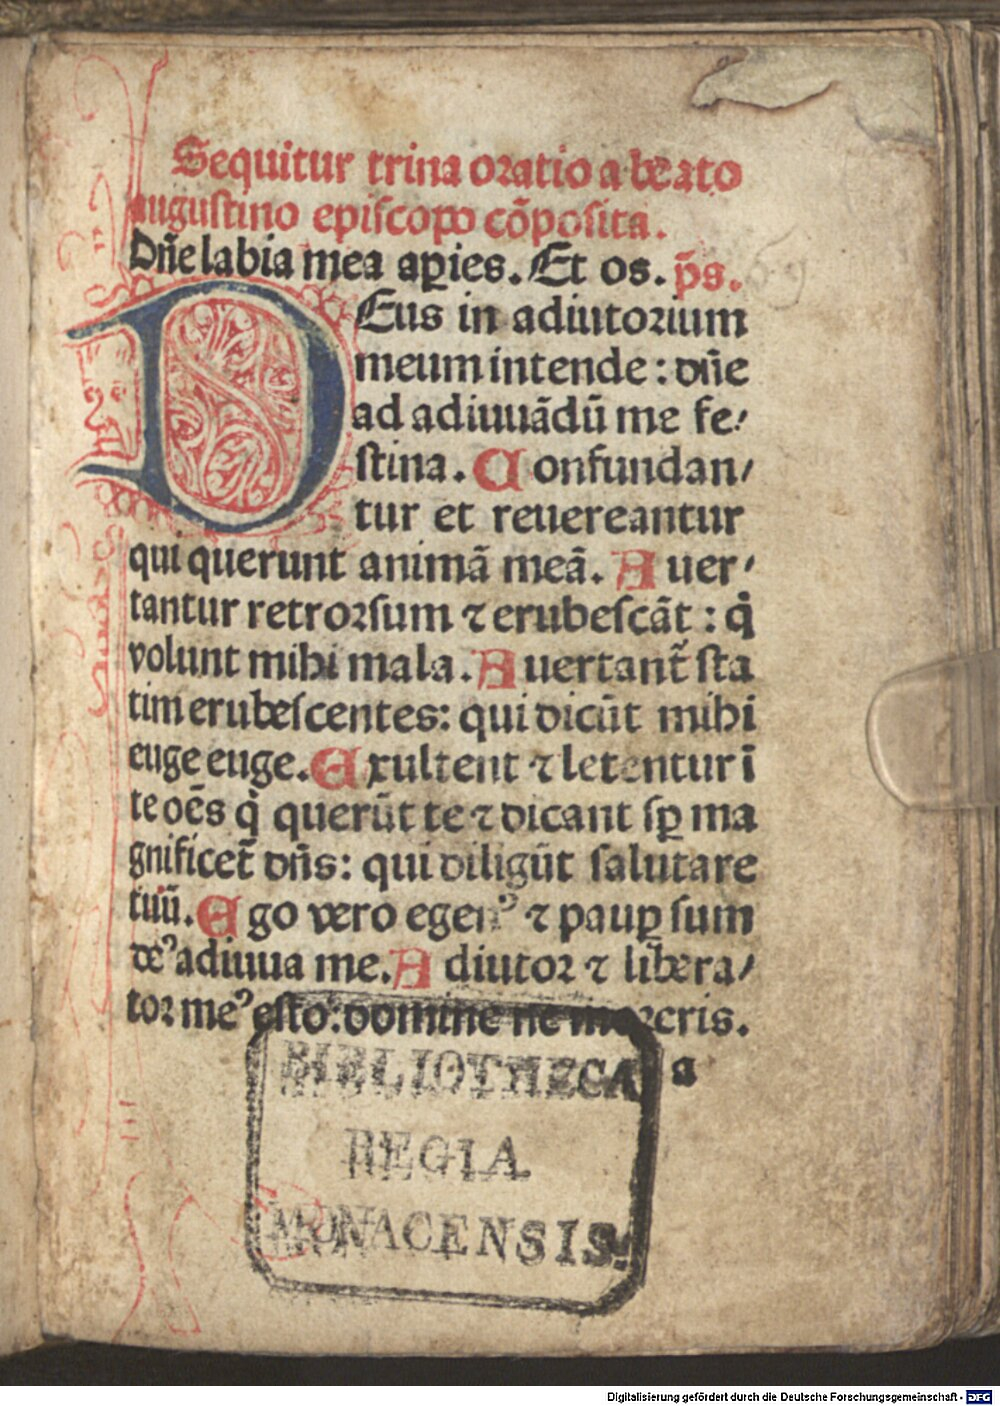 Sequitur trina oratio a beato
augustino episcopo cõposita.
Dñe labia mea aꝑies. Et os. p̄s.
DEus in adiutorium
meum intende: dñe
ad adiuuãdũ me fe/
stina. Confundan/
tur et reuereantur
qui querunt animã meã. Auer/
tantur retrorsum ⁊ erubescãt: q̇
volunt mihi mala. Auertant̃ sta
tim erubescentes: qui dicũt mihi
euge euge. Exultent ⁊ letentur ĩ
te oẽs q̇ querũt te ⁊ dicant sꝑ ma
gnificet̃ dñs: qui diligũt salutare
tuũ. Ego vero egenꝰ ⁊ pauꝑ sum
deꝰ adiuua me. Adiutor ⁊ libera/
tor meꝰ esto: domine ne moreris.
a
BIBLIOTHECA
REGIA
MONACENSIS.
Digitalisierung gefördert durch die Deutsche Forschungsgemeinschaft - DFG